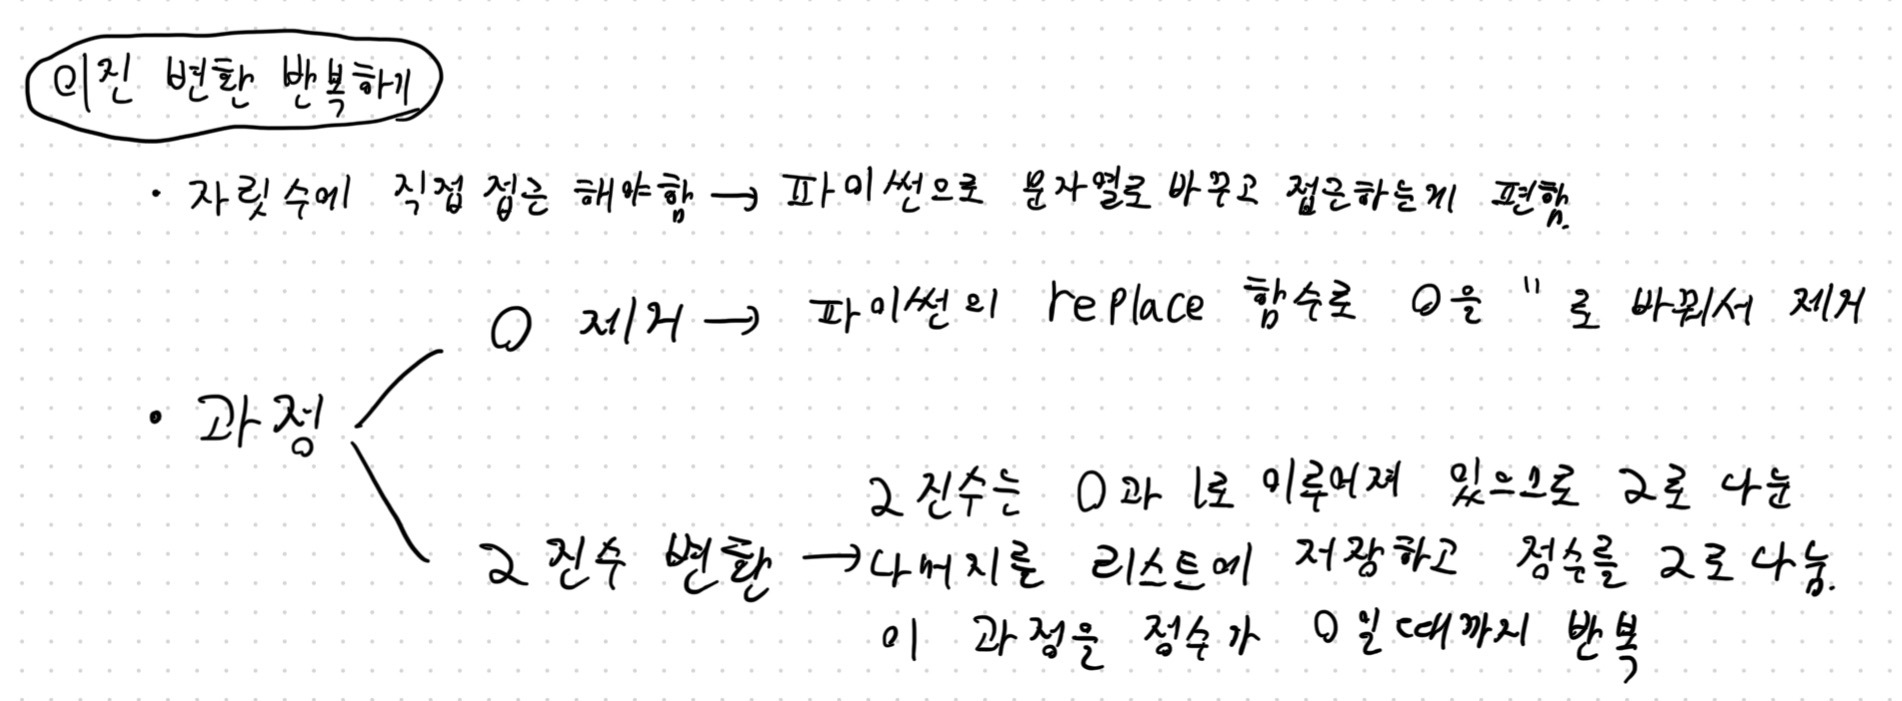 이진 변환 반복하기
· 자릿수에 직접 접근 해야함 → 파이썬으로 문자열로 바꾸고 접근하는게 편함.
0 제거 → 파이썬의 replace 함수로 0을 '' 로 바꿔서 제거
· 과정
2진수 변환 →
2진수는 0과 1로 이루어져 있으므로 2로 나눈
나머지를 리스트에 저장하고 정수를 2로 나눔.
이 과정을 정수가 0일때까지 반복